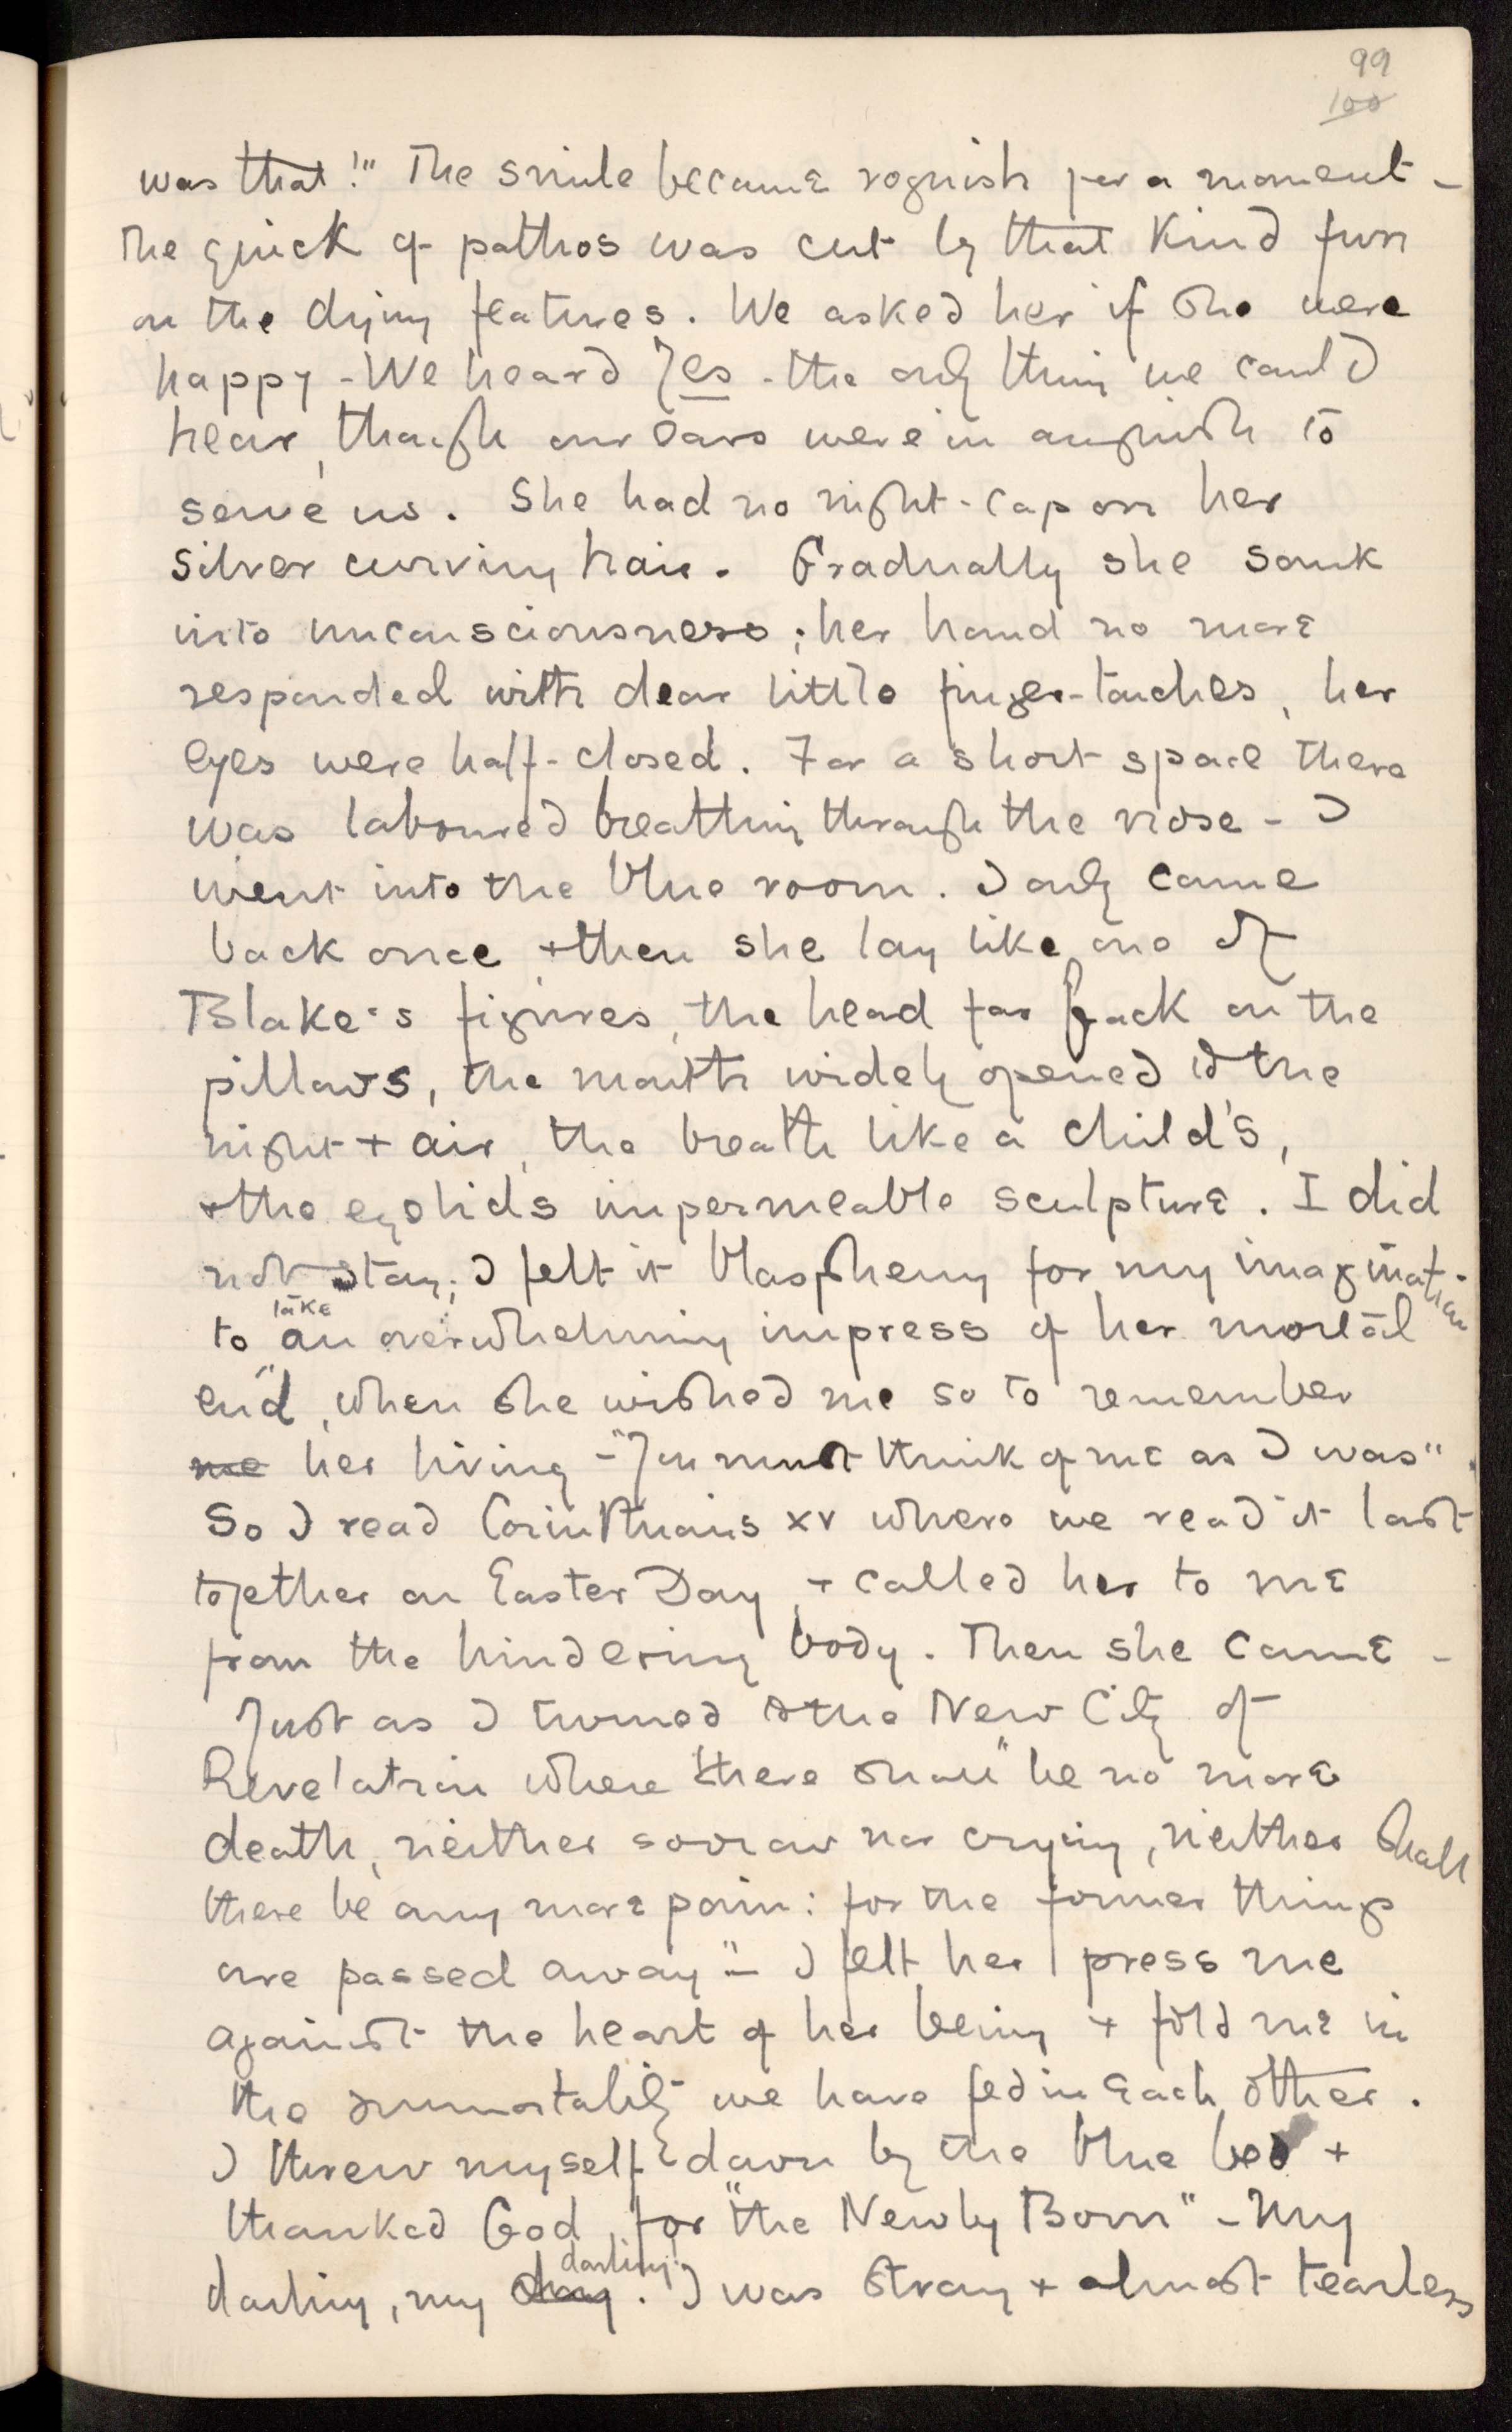 99
100
was that!" The smile became roguish for a moment -
The quick of pathos was cut by that kind fun
on the dying features. We asked her if she were
happy - We heard Yes - the only thing we could
hear, though our ears were in anguish to
serve us. She had no night-cap on her
silver curving hair. Gradually she sank
into unconsciousness; her hand no more
responded with dear little finger-touches, her
eyes were half-closed. For a short space there
was laboured breathing through the nose - I
went into the blue room. I only came
back once + then she lay like one of
Blake's figures, the head far back on the
pillows, the mouth widely opened to the
night + air, the breath like a child's,
+ the eyelids impermeable sculpture. I did
not stay; I felt it blasphemy for my imagination
to take an overwhelming impress of her mortal
end, when she wished me so to remember
me her living - "You must think of me as I was".
So I read Corinthians XV where we read it last
together on Easter Day, + called her to me
from the hindering body. Then she came -
Just as I turned to the New City of
Revelation where "there shall" be no more
death, neither sorrow nor crying, neither shall
there be any more pain: for the former things
are passed away" - I felt her press me
against the heart of her being + fold me in
the immortality we have fed in each other.
I threw myself down by the blue bed +
thanked God, for "the Newly Born" - My
darling, my darling! I was strong + almost tearless